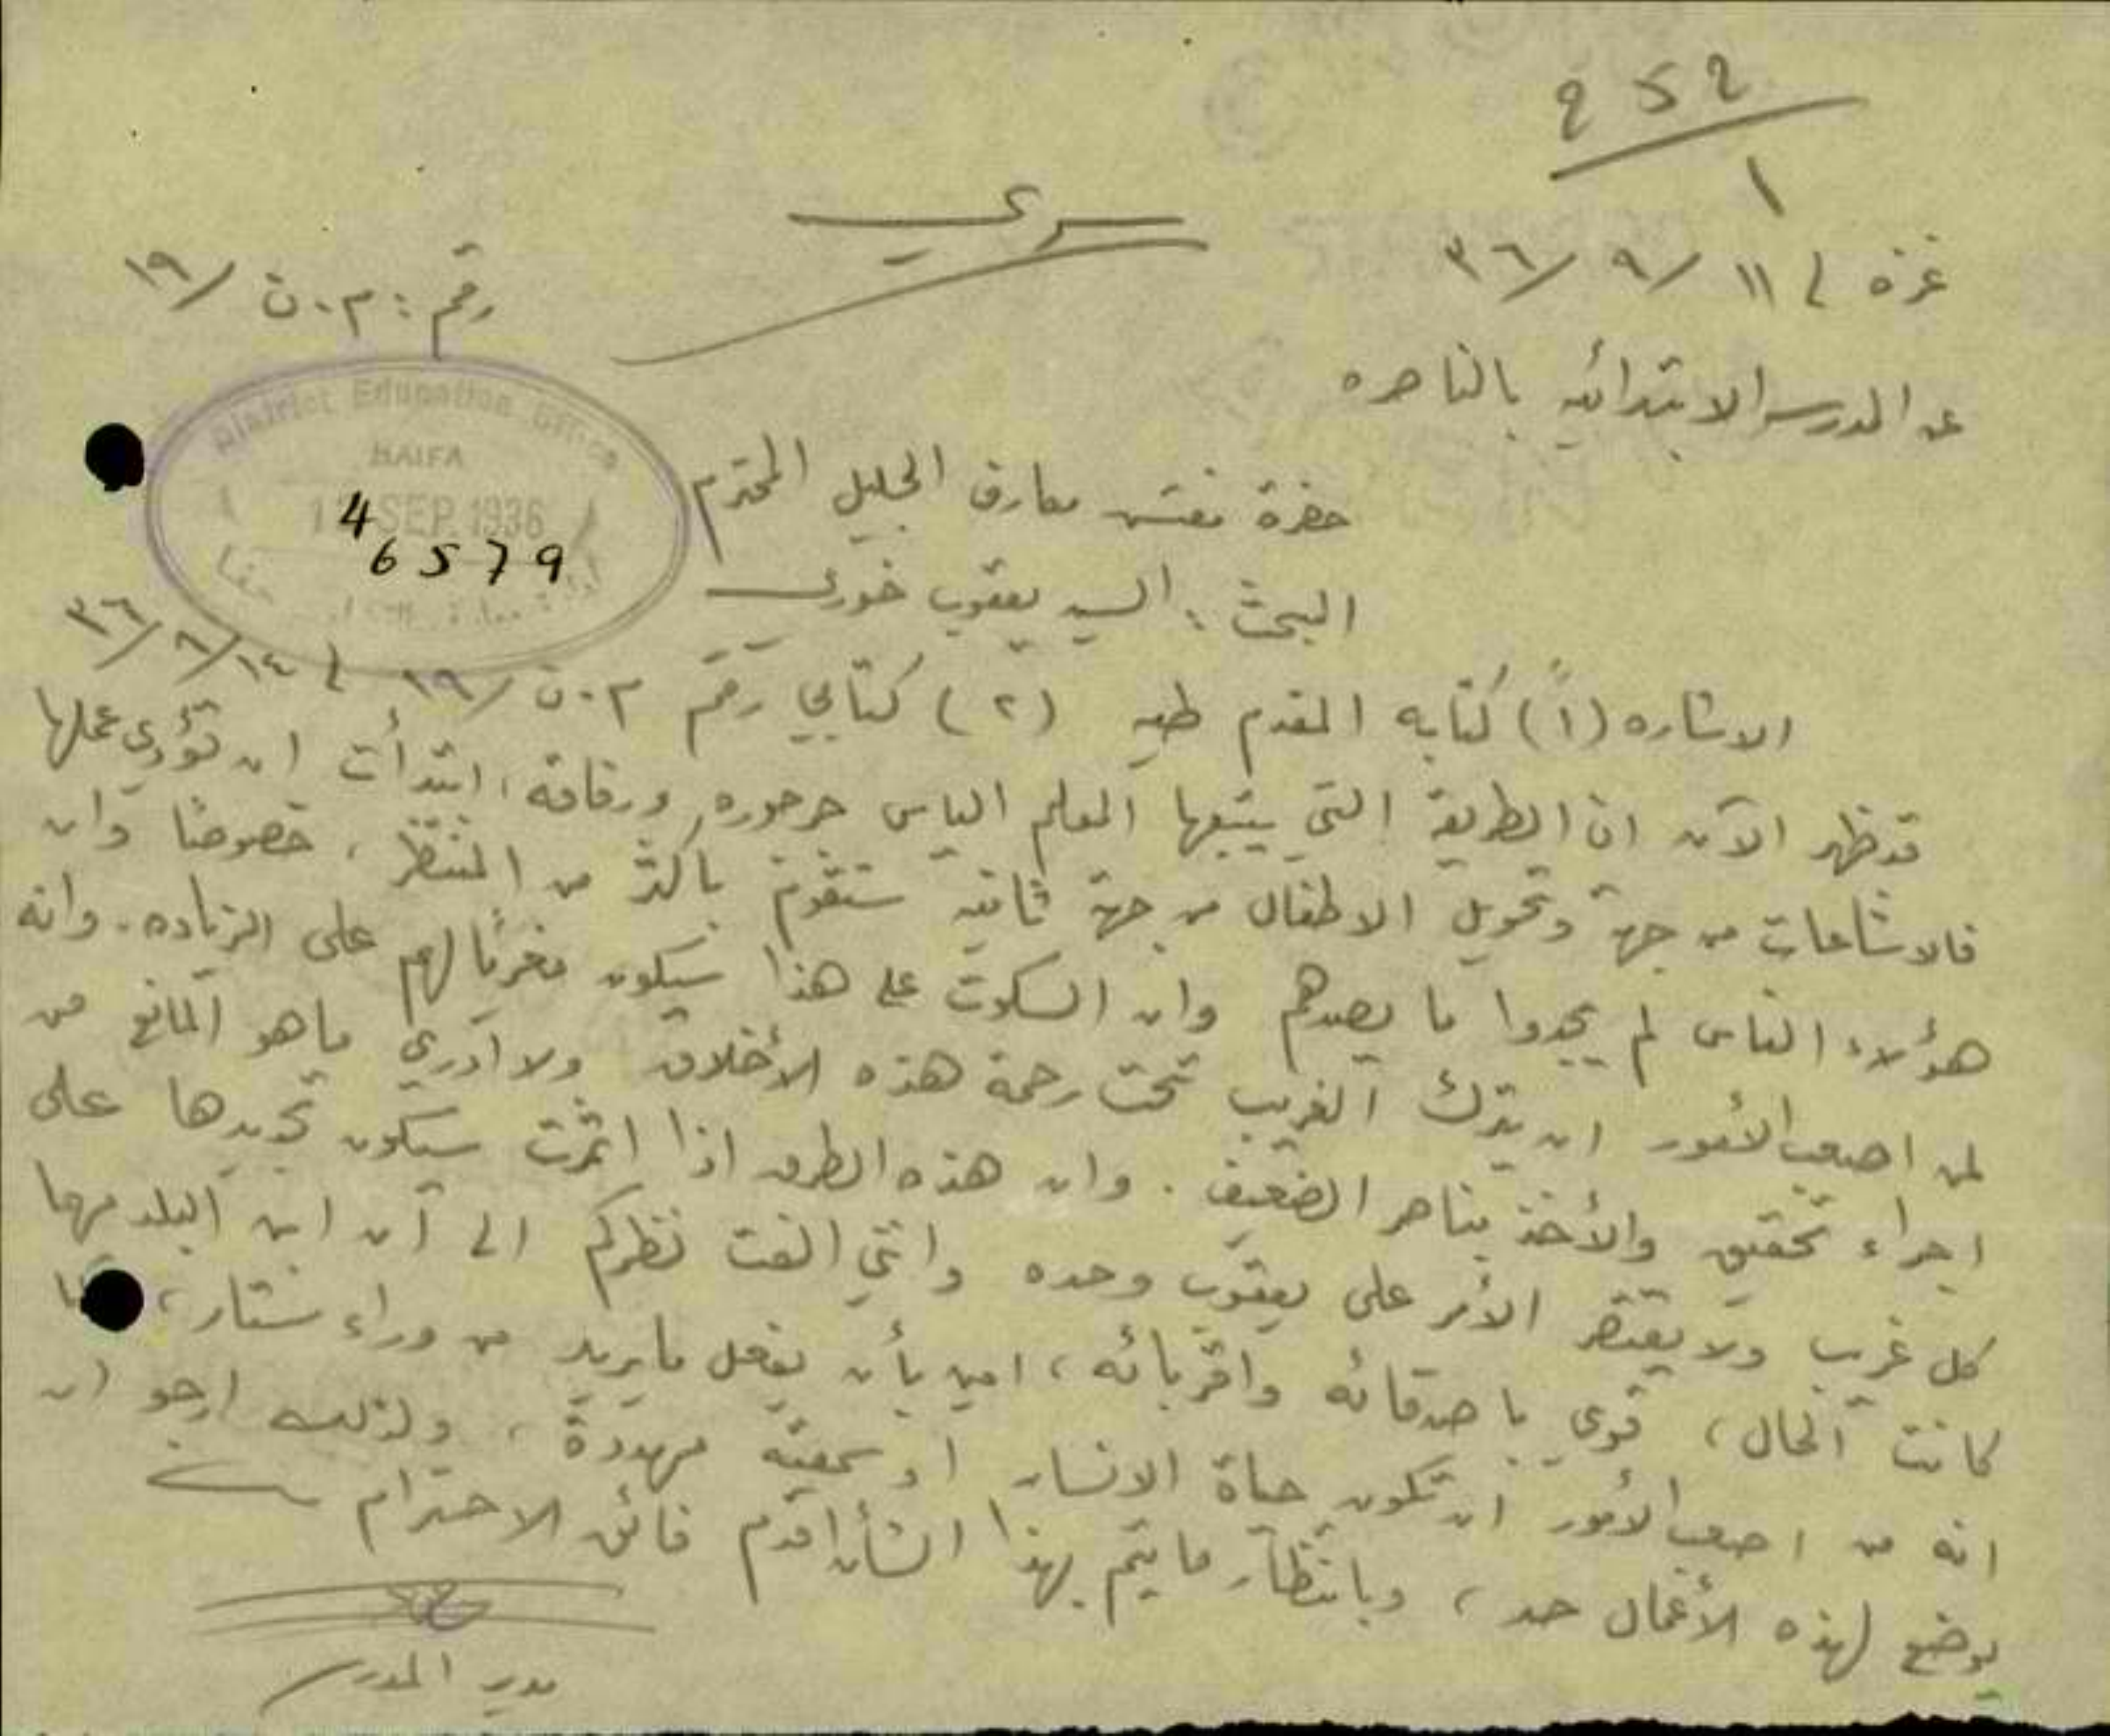 252
١
سري
غزه في ١١/ ٩/ ٣٦
رقم: م.ن /١٩
عن المدرسة الابتدائيه بالناصره
District Education Office
HAIFA
SEP 1936
46579
حضرة مفتش معارف الجليل المحترم
البحث: السيد يعقوب خوري
الاشاره (١) كتابه المقدم طيه (٢) كتابي رقم م.ن /١٩ في ١٤/ ٨/ ٣٦
قد ظهر الآن ان الطريقة التي يتبعها المعلم الياس جرجوره ورفاقه، ابتدأت ان تؤدي عملها
فالاشاعات من جهة وتحويل الاطفال من جهة ثانيه ستقوم باكثر من المنتظر، خصوصًا وان
هؤلاء الناس لم يجدوا ما يصدهم وان السكوت على هذا سيكون مغريًا لهم على الزياده. وانه
لمن اصعب الأمور ان يترك الغريب تحت رحمة هذه الأخلاق ولا ادري ما هو المانع من
اجراء تحقيق والأخذ بناصر الضعيف. وان هذه الطرق اذا اثمرت سيكون تجديدها على
كل غريب ولا يقتصر الأمر على يعقوب وحده وانني الفت نظركم الى أن ابن البلد مهما
كانت الحال، قوي باصدقائه واقربائه، امين بأن يفعل ما يريد من وراء ستار،
انه من اصعب الأمور ان تكون حياة الانسان او سمعته مهددة، ولذلك ارجو ان
يوضع لهذه الأعمال حد، وبانتظار ما يتم بهذا الشأن اقدم فائق الاحترام
مدير المدرسة